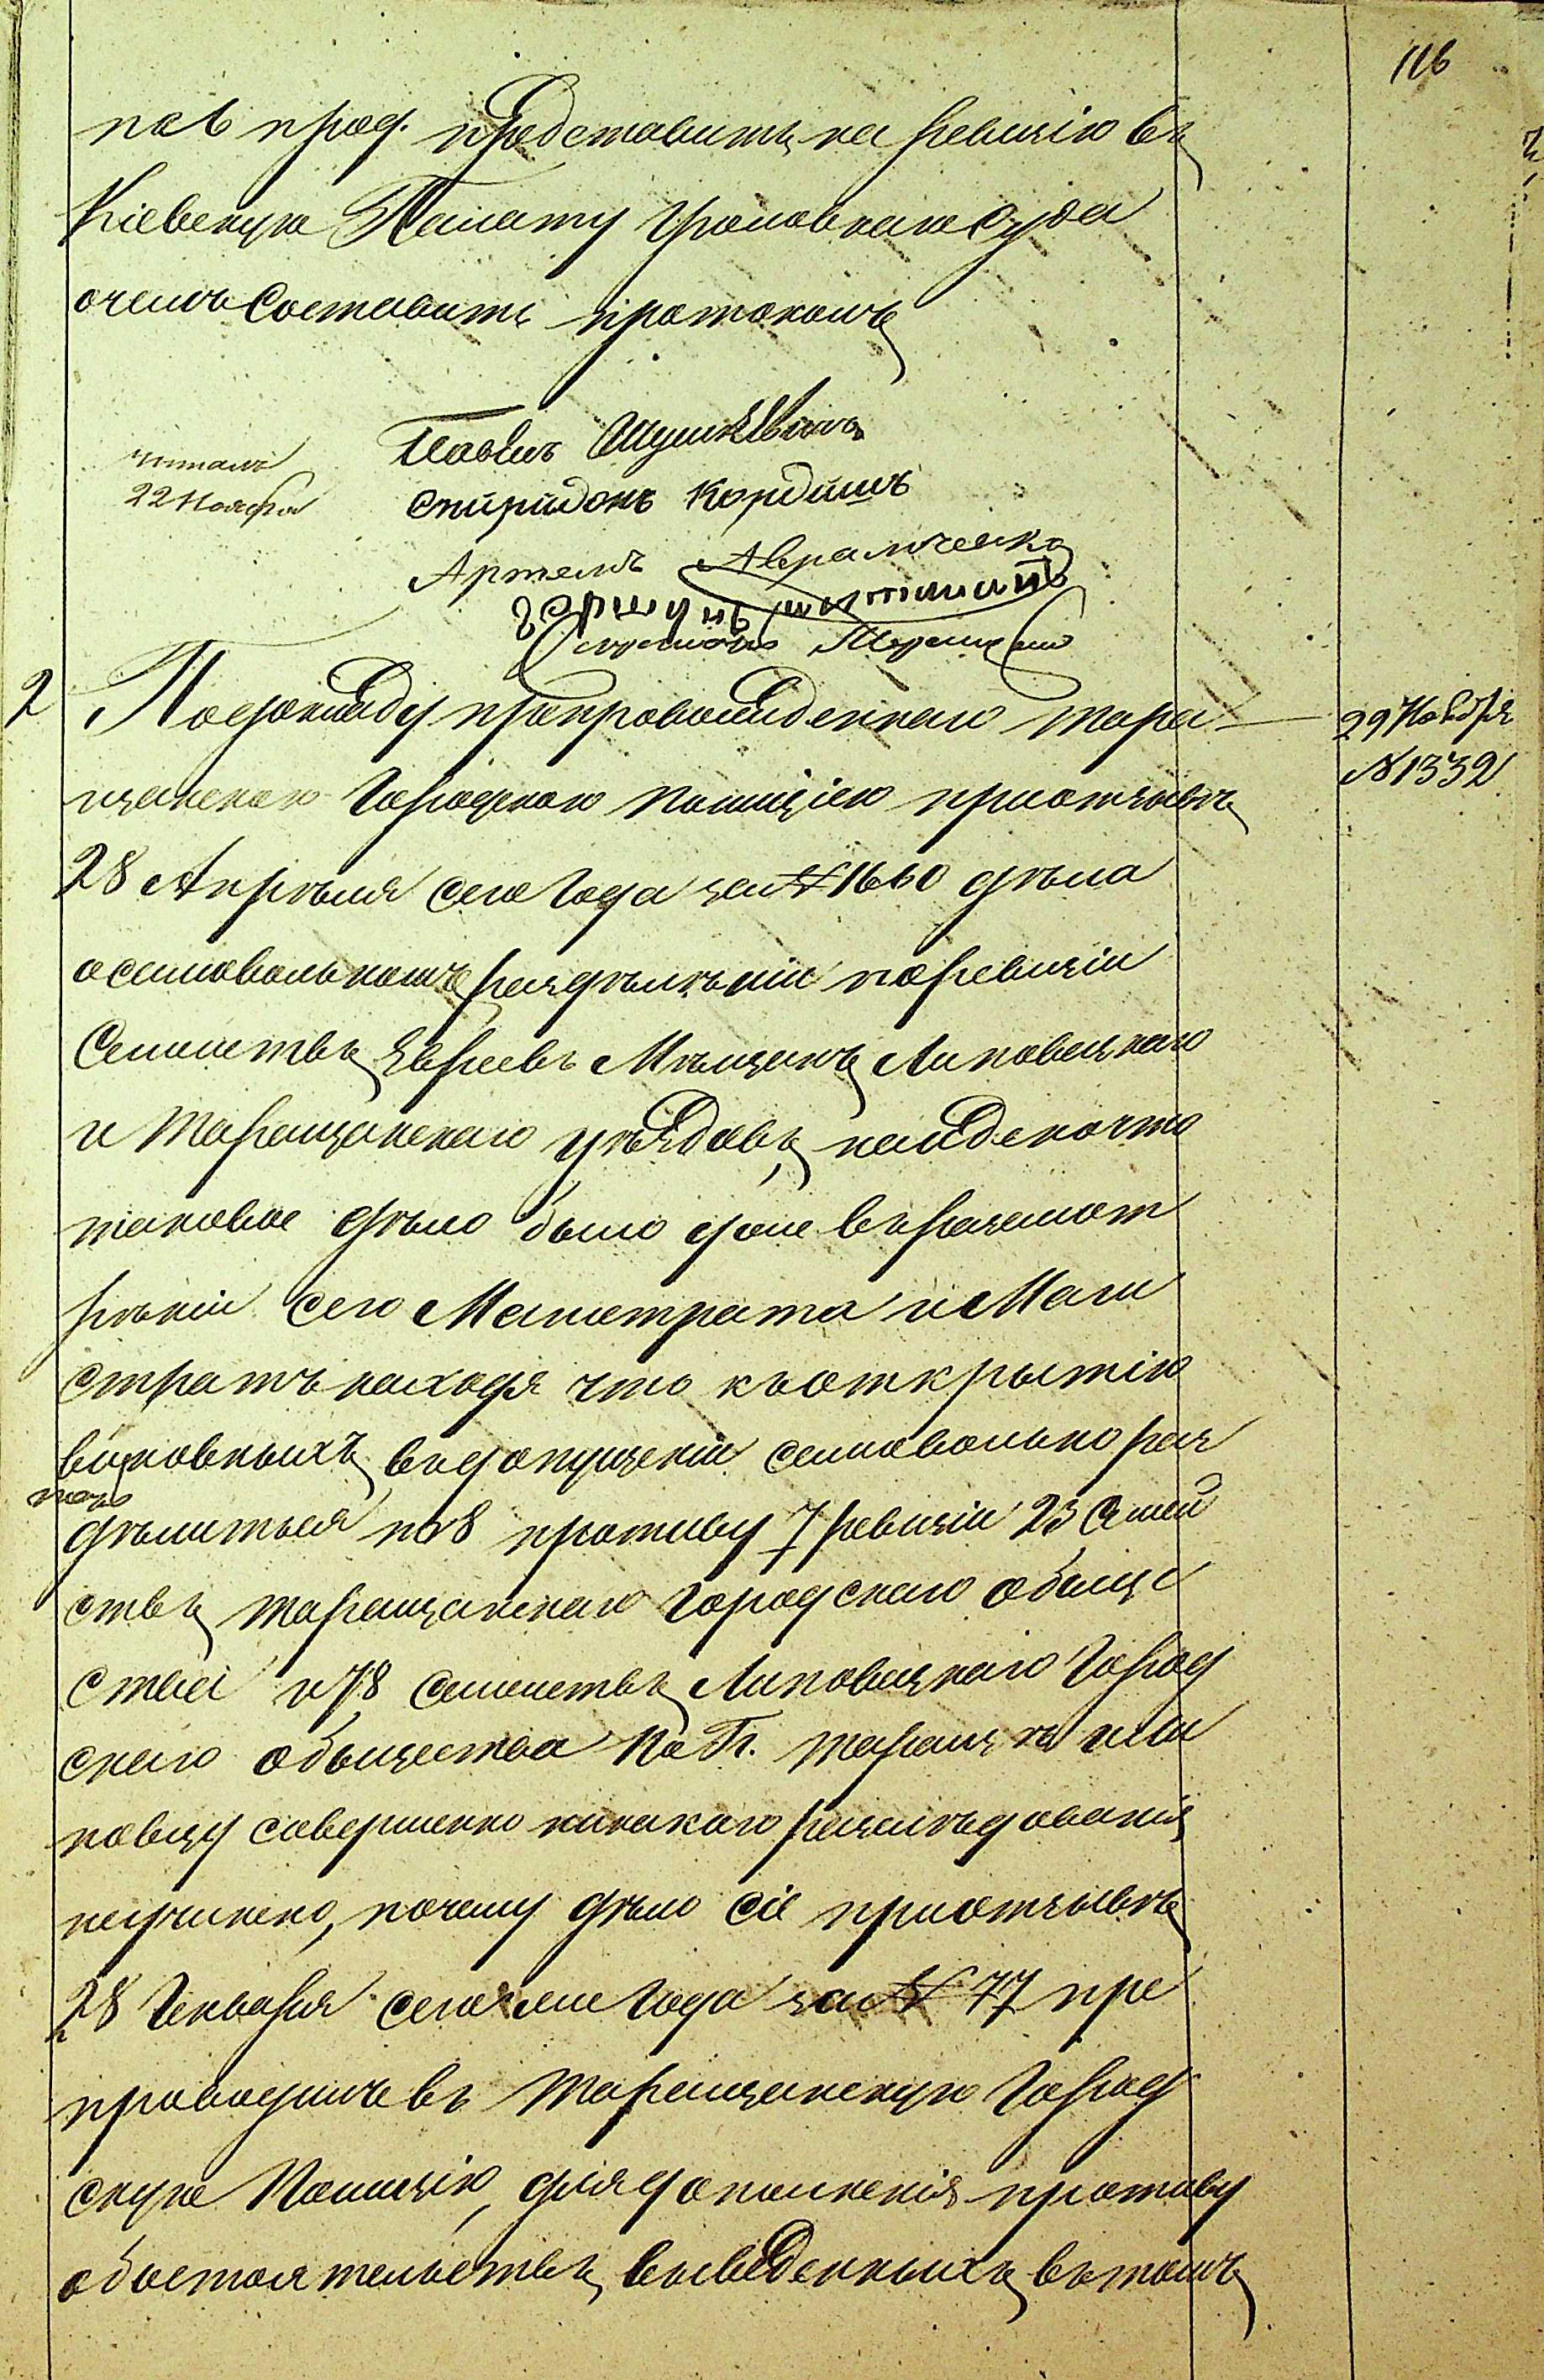 116
пов прод. представить на ревизію въ
Кіевскую Палату Уголовнаго Суда
о чемъ Составить протоколъ
читалъ
22 Ноября
Павелъ
Спиридонъ Кордышъ
Артемъ Авраменко
2
По докладу препровожденнаго Тара
29 Ноября
№ 1332
щанскою Городскою Полиціею при отзывѣ
28 Апрѣля сего года за № 1660 дѣла
о самовольномъ раздѣленіи по ревизіи
Семействъ Евреевъ Мѣщанъ Липовецкаго
и Таращанскаго уѣздовъ, найдено что
таковое дѣло было уже въ разсмот
рѣніи сего Магистрата и Маги
стратъ находя что къ открытію
виновныхъ въ допущеніи самовольно раз
дѣлиться по 8 противу 7 ревизіи 23 Семей
ствъ Таращанскаго Городскаго обще
ства и 78 семействъ Липовецкаго Город
скаго общества по Г. Таращѣ и Ли
повцу совершенно никакого разслѣдованія
неучинено, почему дѣло сіе при отзывѣ
28 Генваря сего же года за № 77 пре
проводилъ въ Таращанскую Город
скую Полицію, для дополненія противу
обстоятельствъ выведенныхъ въ томъ